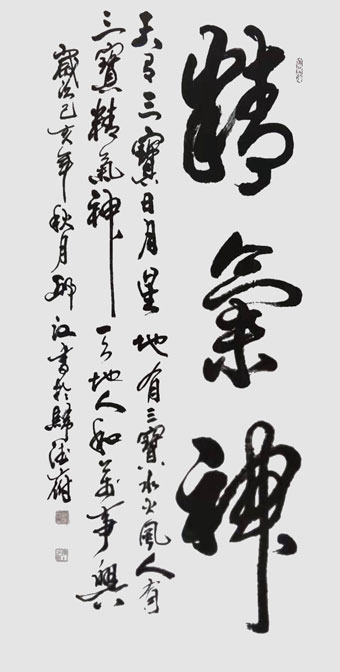 精氣神
天有三寶日月星地有三寶水火風人有
三寶精氣神天地人和萬事興
歲次己亥年秋月柳江書於歸德府